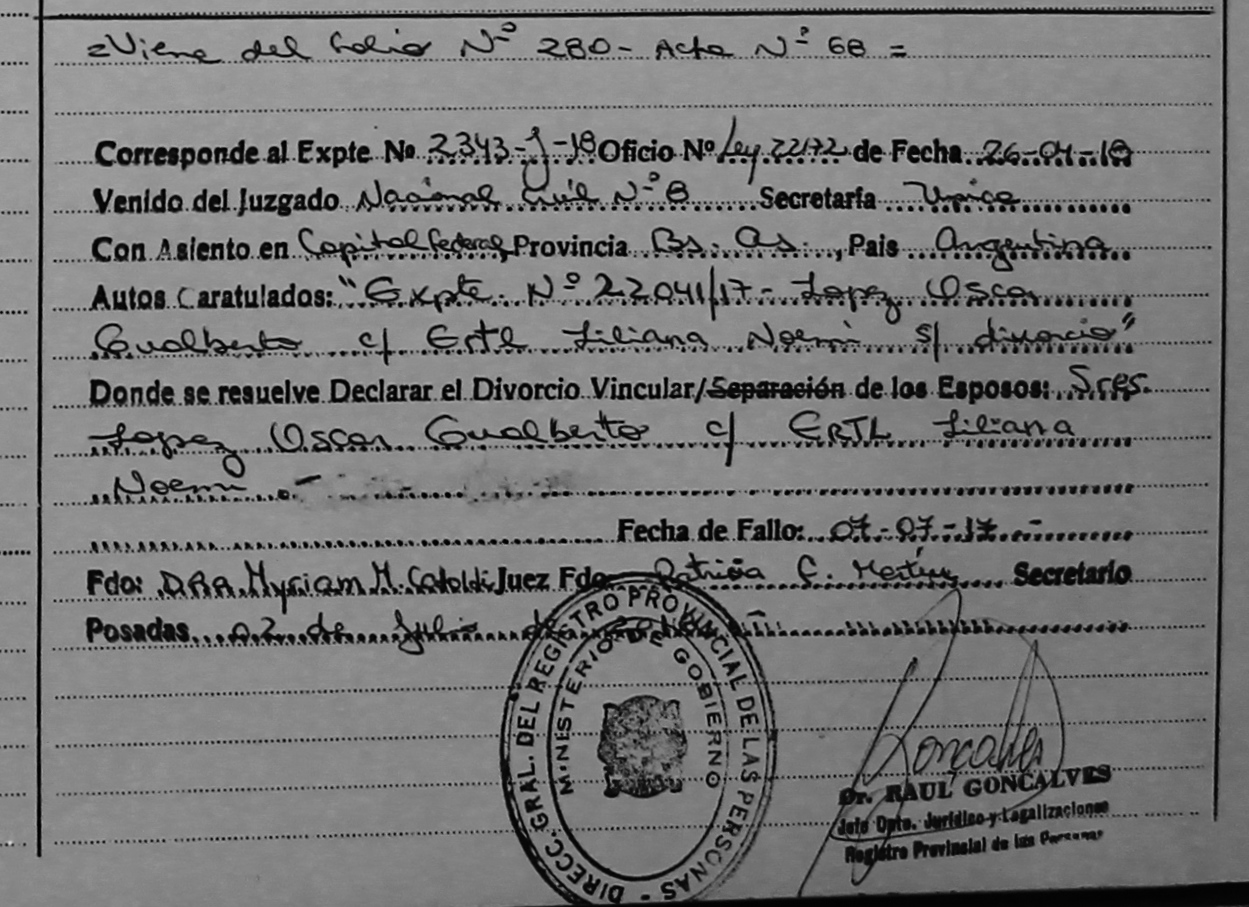 =Viene del folio Nº 280- Acta Nº 68=
Corresponde al Expte Nº 2343-J-18 Oficio Nº Ley 22172 de Fecha 26-04-18
Venido del Juzgado Nacional Civil Nº 8 Secretaría Unica
Con Asiento en Capital Federal, Provincia Bs. As., Pais Argentina
Autos Caratulados: "Expte. Nº 22041/17- Lopez Oscar
Gualberto c/ Ertl Liliana Noemi s/ divorcio"
Donde se resuelve Declarar el Divorcio Vincular/Separación de los Esposos: Sres.
Lopez Oscar Gualberto c/ ERTL Liliana
Noemi.-
Fecha de Fallo: 07-07-17.-
Fdo: DRA. Myriam M. Cataldi Juez Fdo: Patricia C. Martinez Secretario
Posadas 02 de Julio de
DIRECC. GRAL. DEL REGISTRO PROVINCIAL DE LAS PERSONAS -
MINISTERIO DE GOBIERNO
Goncalves
Dr. RAUL GONCALVES
Jefe Dpto. Jurídico y Legalizaciones
Registro Provincial de las Personas